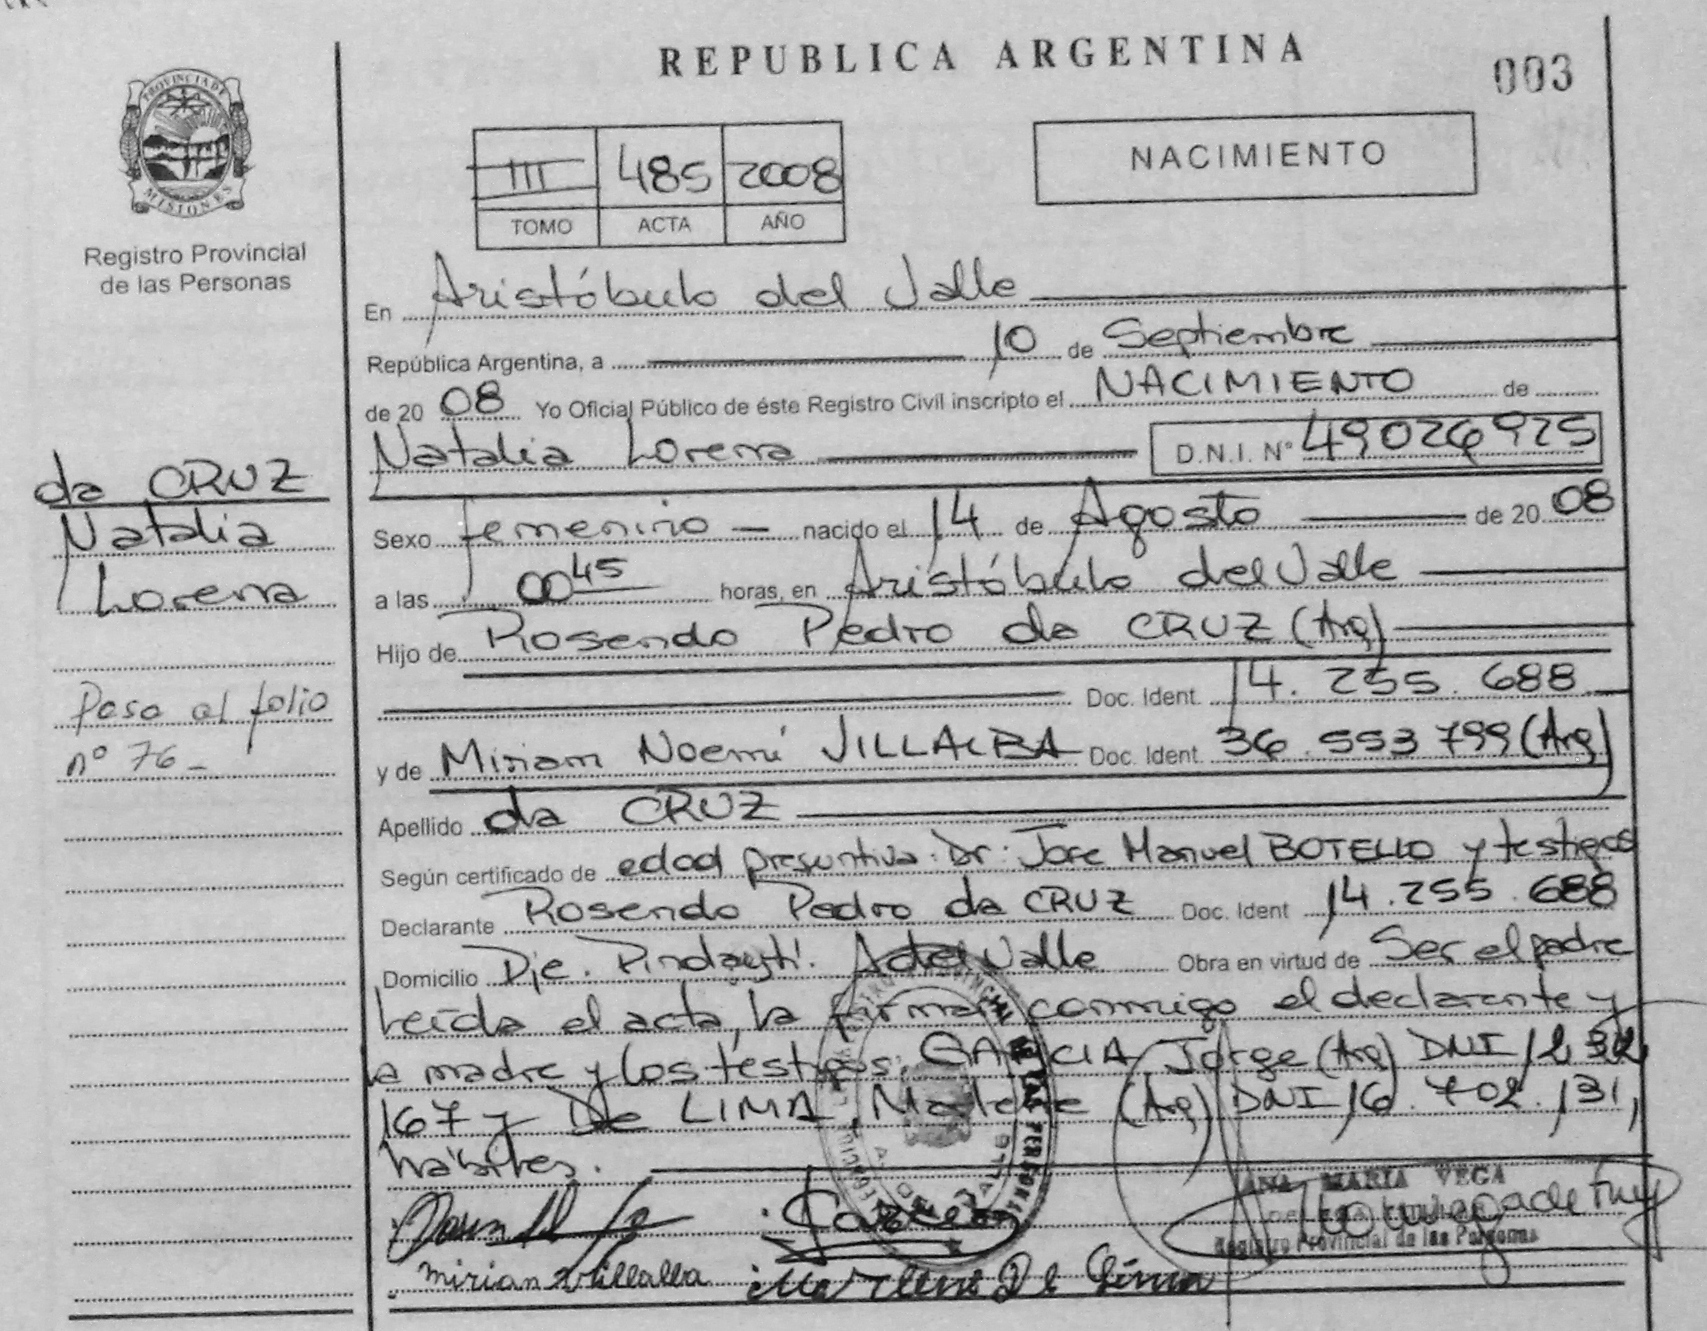 REPUBLICA ARGENTINA
003
PROVINCIA DE
MISIONES
Registro Provincial
de las Personas
III 485 2008
TOMO ACTA AÑO
NACIMIENTO
En Aristóbulo del Valle
República Argentina, a 10 de Septiembre
de 20 08 Yo Oficial Público de éste Registro Civil inscripto el NACIMIENTO de
Natalia Lorena D.N.I. Nº 49026925
da CRUZ
Natalia
Lorena
Sexo femenino nacido el 14 de Agosto de 20 08
a las 00 45 horas, en Aristóbulo del Valle
Hijo de Rosendo Pedro da CRUZ (Arg)
Doc. Ident. 14.255.688
Paso al folio
nº 76-
y de Miriam Noemí VILLALBA Doc. Ident. 36.553799 (Arg)
Apellido da CRUZ
Según certificado de edad presuntiva: Dr: Jose Manuel BOTELLO y testigos
Declarante Rosendo Pedro da CRUZ Doc. Ident 14.255.688
Domicilio Pje. Pindaytí. A del Valle Obra en virtud de Ser el padre
Leída el acta, la firman conmigo el declarante y
la madre y los testigos: GARCIA Jorge (Arg) DNI
167 y De LIMA Marlene (Arg) DNI 16.702.131,
hábiles.
ANA MARIA VEGA
Registro Provincial de las Personas
Mirian Villalba Marlene De Lima